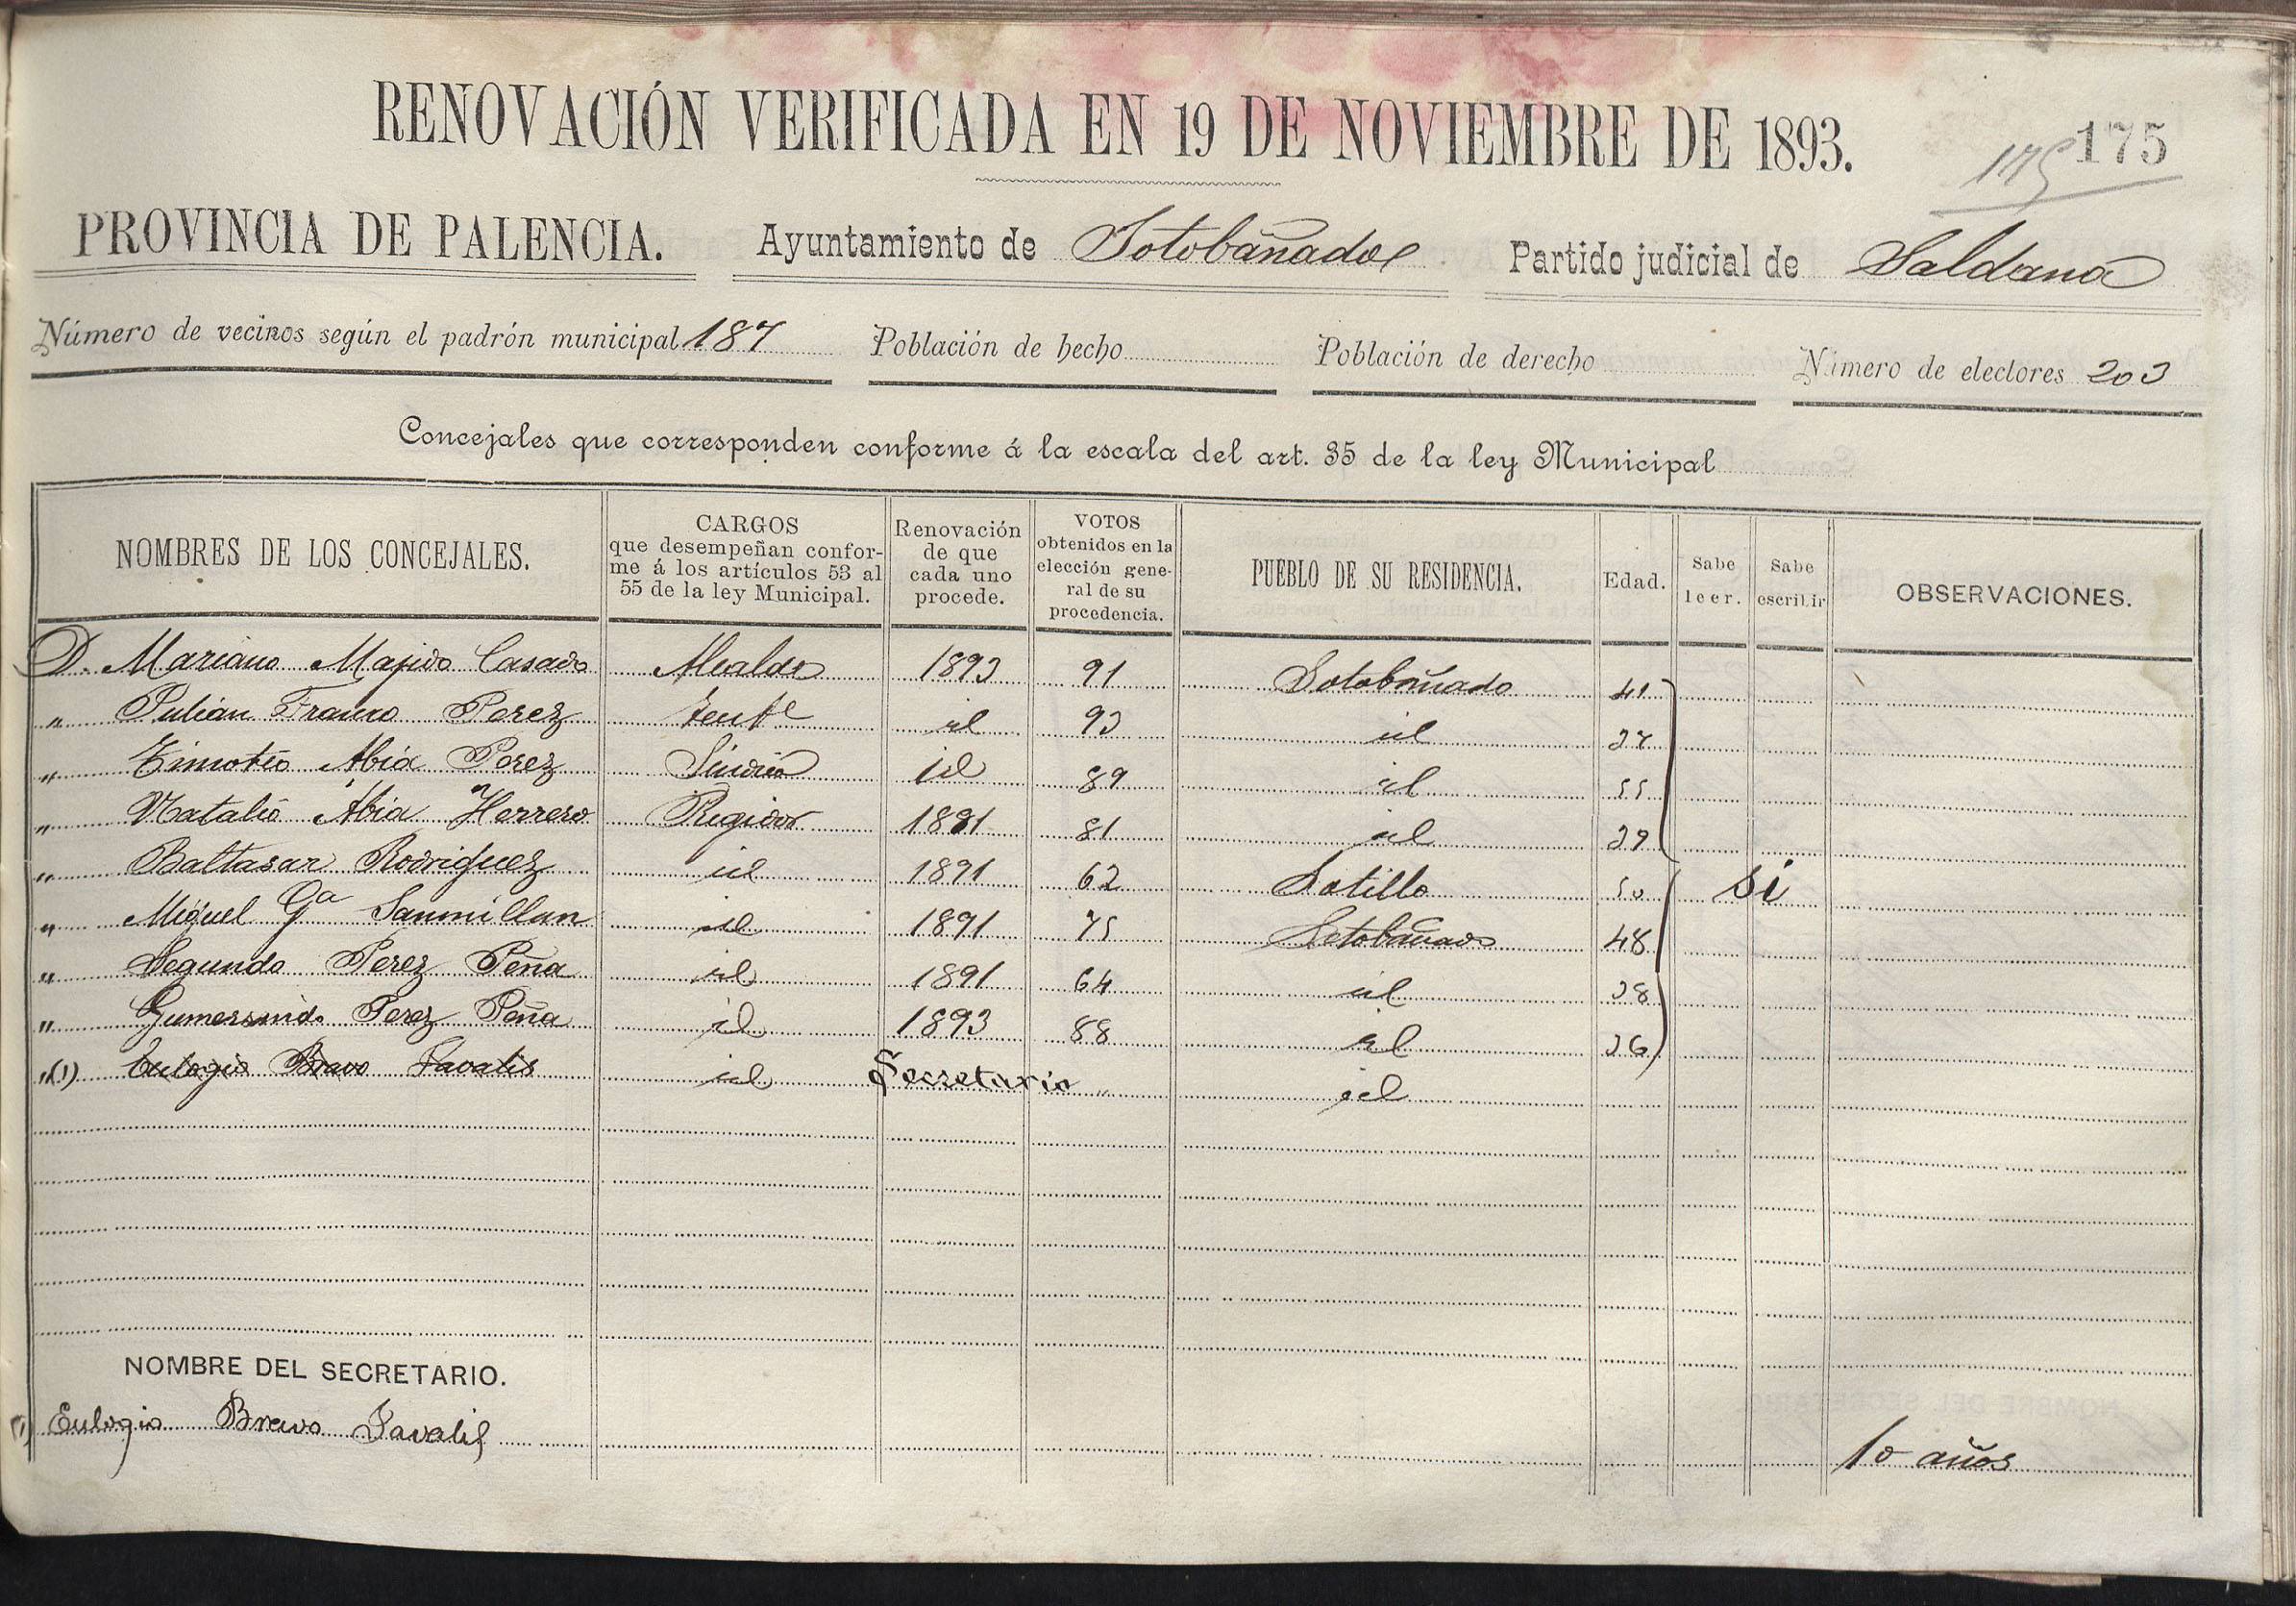 RENOVACIÓN VERIFICADA EN 19 DE NOVIEMBRE DE 1893.
175 175
PROVINCIA DE PALENCIA. Ayuntamiento de Sotobañado Partido judicial de Saldana
Número de vecinos según el padrón municipal 187 Población de hecho Población de derecho Número de electores 203
Concejales que corresponden conforme á la escala del art. 35 de la ley Municipal
NOMBRES DE LOS CONCEJALES. CARGOS que desempeñan confor- me á los artículos 53 al 55 de la ley Municipal. Renovación de que cada uno procede. VOTOS obtenidos en la elección gene- ral de su procedencia. PUEBLO DE SU RESIDENCIA. Edad. Sabe leer. Sabe escribir OBSERVACIONES.
D. Mariano Casado Alcalde 1893 91 Sotobañado 41
" Julián Franco Perez Tente id 93 id
" Timoteo Abia Perez Síndico id 89 id 55
" Natalio Abia Herrero Regidor 1891 81 id
" Baltasar Rodriguez id 1891 62 Sotillo 50 Si
" Miguel Ga Sanmillan id 1891 75 Sotobañado 48
" Segundo Perez Peña id 1891 64 id 38
" Gumersindo Perez Peña id 1893 88 id 36
"(1) Eulogio Bravo id Secretario " id
NOMBRE DEL SECRETARIO.
(1) Eulogio Bravo 10 años